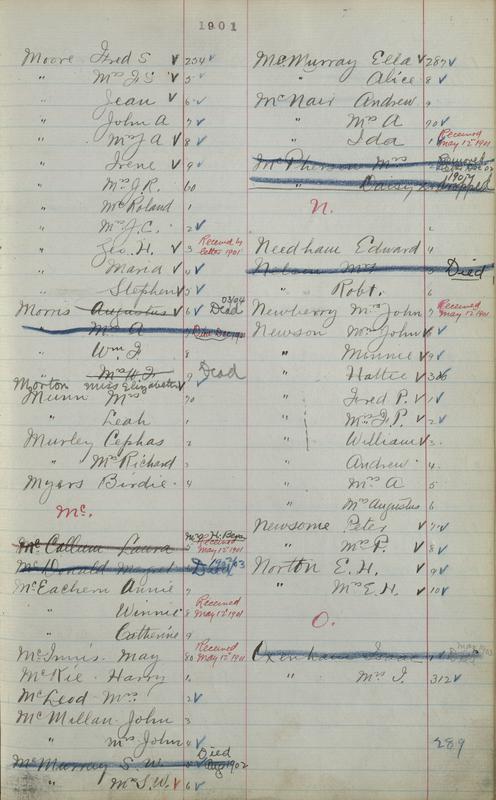 1901
Moore Fred S ✓ 254 ✓
" Mrs F. S. ✓ 5 ✓
" Jean ✓ 6 ✓
" John A ✓ 7 ✓
" Mrs J A ✓ 8 ✓
" Irene ✓ 9 ✓
" Mrs J. R. 60
" McRoland 1
" Mrs J. C. 2 ✓
" Geo. H. ✓ 3 Received by letter 1901
" Maria ✓ 4 ✓
" Stephen ✓ 5 ✓
Morris Augustus ✓ 6 ✓ Dead 03/04
" Mrs A 7
" Wm F 8
" Mrs W. F 9 Dead
Morton Miss Elizabeth ✓ ✓
Munn Mrs 70
" Leah 1
Murley Cephas 2
" Mrs Richard 3
Myers Birdie 4
Mc.
McCallum Laura 5 Mrs H. Received May 12 1901
McDonald Margret Died
McEachern Annie 7
" Winnie 8 Received May 12 1901
" Catherine 9
McInnis May 80 Received May 12 1901
McKie Harry 1
McLeod Mrs 2 ✓
McMillan John 3
" Mrs John 4 ✓
McMurray S. W. 5 ✓ Died Aug 1902
" Mrs S. W. ✓ 6 ✓
McMurray Ella ✓ 287 ✓
" Alice 8 ✓
McNair Andrew 9
" Mrs A 90 ✓
" Ida 1 ✓ Received May 12 1901
McPherson Mrs
" Daisy Dropped
N.
Needham Edward 4
Nelson Mrs 5 Died
" Robt. 6
Newberry Mrs John 7 Received May 12 1901
Newson Mrs John ✓ 8 ✓
" Minnie ✓ 9 ✓
" Hattie ✓ 300 ✓
" Fred P. ✓ 1 ✓
" Mrs F. P. ✓ 2 ✓
" William ✓ 3
" Andrew 4
" Mrs A 5
" Mrs Augustus 6
Newsome Peter ✓ 7 ✓
" Mrs P. ✓ 8 ✓
Norton E. H. ✓ 9 ✓
" Mrs E. H. ✓ 10 ✓
O.
Oxenham Isaac
" Mrs I. 312 ✓
289